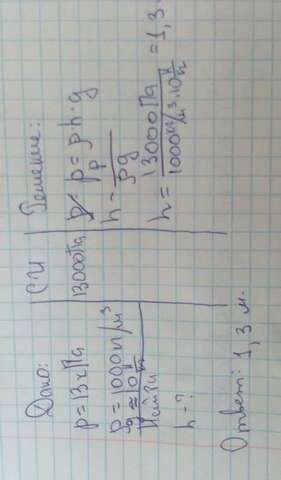 Дано:
p = 13 кПа
ρ = 1000 кг/м³
g = 10 Н/кг
Найти
h - ?
СИ
13000 Па
Решение:
p = ρ·h·g
h = p/ρg
h = 13000 Па / 1000 кг/м³ · 10 Н/кг = 1,3
Ответ: 1,3 м.